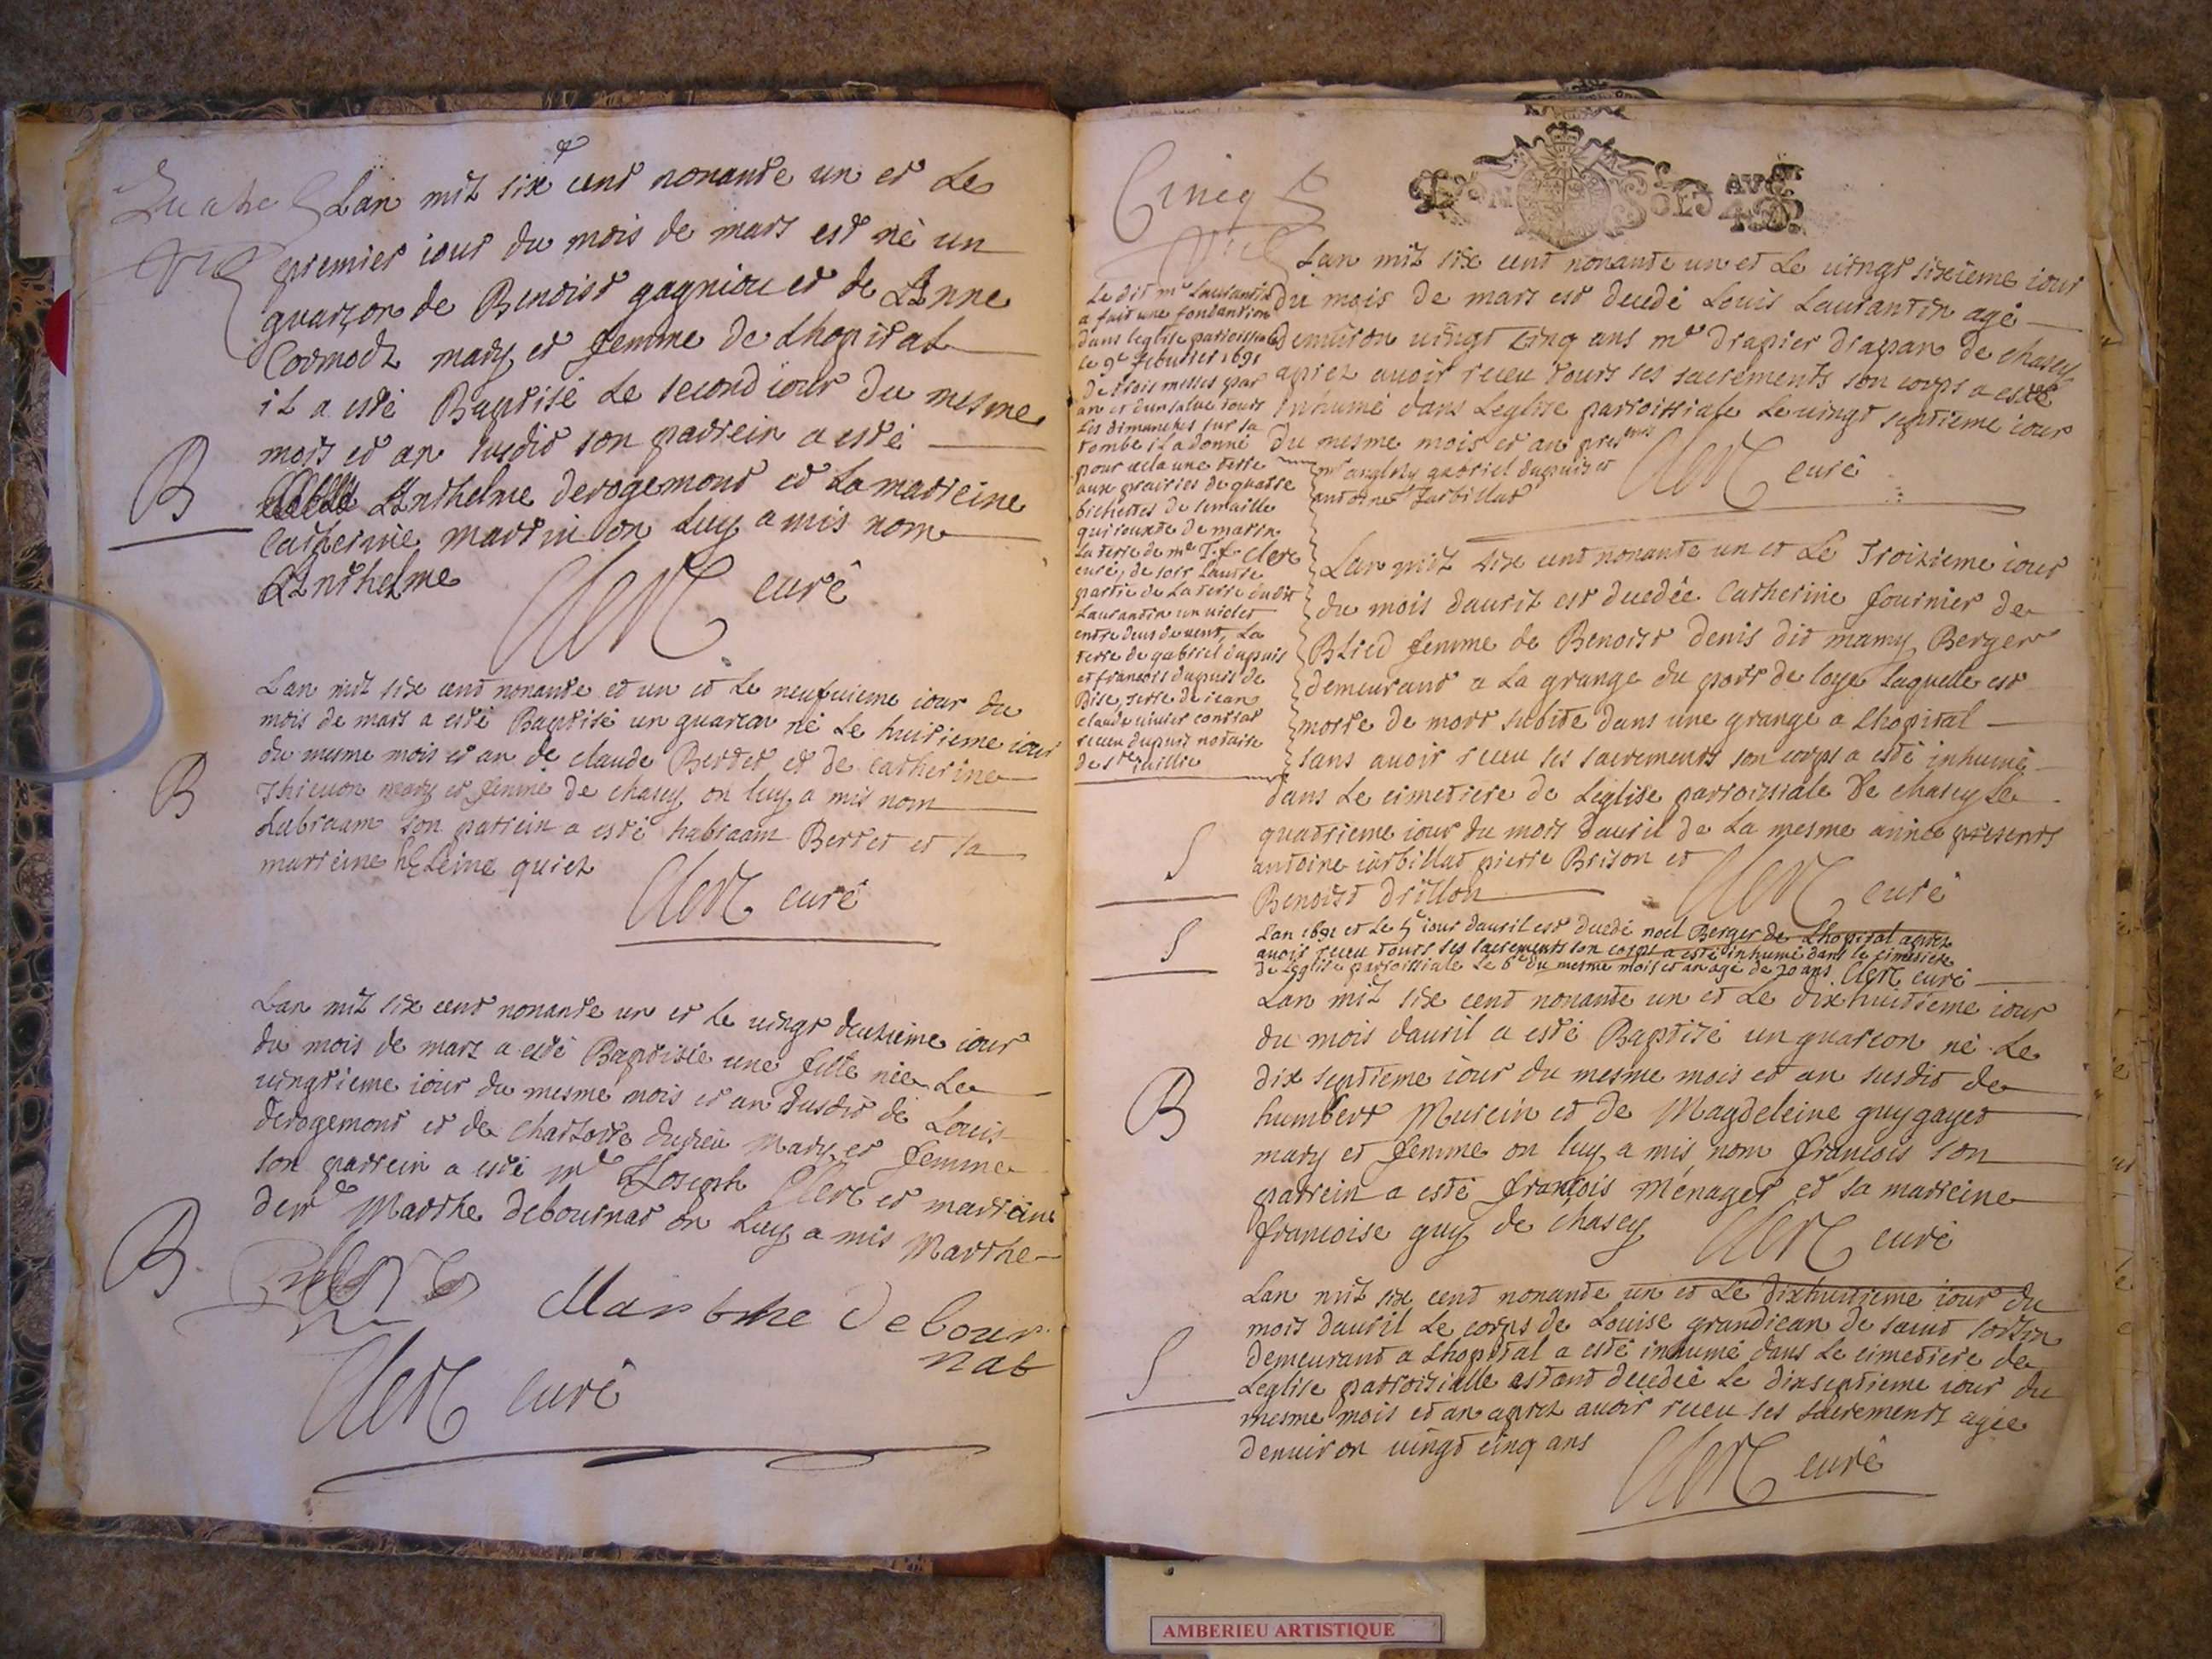 Lan mil six cent nonante un et Le
premier iour du mois de mars est né un
guarçon de Benoist gagniou et de Anne
Cormodz mary et femme de Lhopital
il a esté Baptisé Le second iour du mesme
mois et an susdit son parrein a esté
Anthelme derogemont et La marreine
Catherine martin on Luy a mis nom
Anthelme
Clerc curé
B
Lan mil six cent nonante et un et Le neufuieme iour du
mois de mars a esté Baptisé un guarcon né Le huitieme iour
du mesme mois et an de claude Berret et de catherine
Thieuon mary et femme de chasey on luy a mis nom
Aabraam son parrein a esté habraam Berret et sa
marreine heleine quiet
B
Clerc curé
Lan mil six cent nonante un et Le uingt deuxieme iour
du mois de mars a esté Baptisée une fille née Le
uingtieme iour du mesme mois et an susdit de Louis
derogemont et de charlotte duzieu Mary et femme
son parrein a esté mr Joseph Clerc et marreine
derlle Marthe debournat on Luy a mis Marthe
B
Marthe debour
nat
Clerc curé
Cincq
AVGt
Lan mil six cent nonante un et Le uingt sixieme iour
du mois de mars est decedé Louis Laurantin agé
denuiron uingt cinq ans mr drapier drapan de chasey
aprez auoir receu touts ses sacrements son corps a esté
inhumé dans Leglise parroissiale Le uingt septieme iour
du mesme mois et an presents
mr anglely gabriel dupuis et
antoine Jarbillat
Clerc curé
Le dit mr Laurantin
a fait une fondantion
dans leglise parroissiale
Le 9e feburier 1691
de trois messes par
an et dun salue touts
Les dimanches sur sa
tombe il a donné
pour cela une terre
aux prairies de quatre
bichettes de semaille
qui iouxte de matin
La terre de mr J.f. Clerc
curé, de soir Lautre
partie de La terre dudit
Laurantin un uiolet
entre deus de uent, La
terre de gabriel dupuis
et francois dupuis de
Bise, terre de iean
claude uiuier contrat
receu dupuis notaire
de st iullie
Lan mil six cent nonante un et Le Troizieme iour
du mois dauril est decedée Catherine fournier de
Blied femme de Benoist denis dit mamy Berger
demeurant a La grange du port de loye laquelle est
morte de mort subite dans une grange a Lhopital
sans auoir receu ses sacrements son corps a esté inhumé
dans Le cimetiere de Léglise parroissiale de chasey Le
quatrieme iour du mois dauril de La mesme année presents
antoine iarbillat pierre Brison et
Benoist drillon
S
Clerc curé
S
Lan 1691 et Le 5e iour dauril est decedé noel Berger de Lhopital aprez
auoir receu touts ses sacrements son corps a esté inhumé dans le cimetiere
de Leglise parroissiale Le 6e du mesme mois et an agé de 20 ans. Clerc curé
Lan mil six cent nonante un et Le dixhuitieme iour
du mois dauril a esté Baptisé un guarcon né Le
dix septieme iour du mesme mois et an susdit de
humbert Murcin et de Magdeleine guygayet
mary et femme on luy a mis nom francois son
parrein a esté françois Ménager et sa marreine
francoise guy de chasey
B
Clerc curé
Lan mil six cent nonante un et Le dixhuitieme iour du
mois dauril Le corps de Louise grandiean de saint sorlin
demeurant a Lhopital a esté inhumé dans Le cimetiere de
Léglise parroissialle estant decedée Le dixseptieme iour du
mesme mois et an aprez auoir receu ses sacrements agée
denuiron uingt cinq ans
S
Clerc curé
AMBERIEU ARTISTIQUE